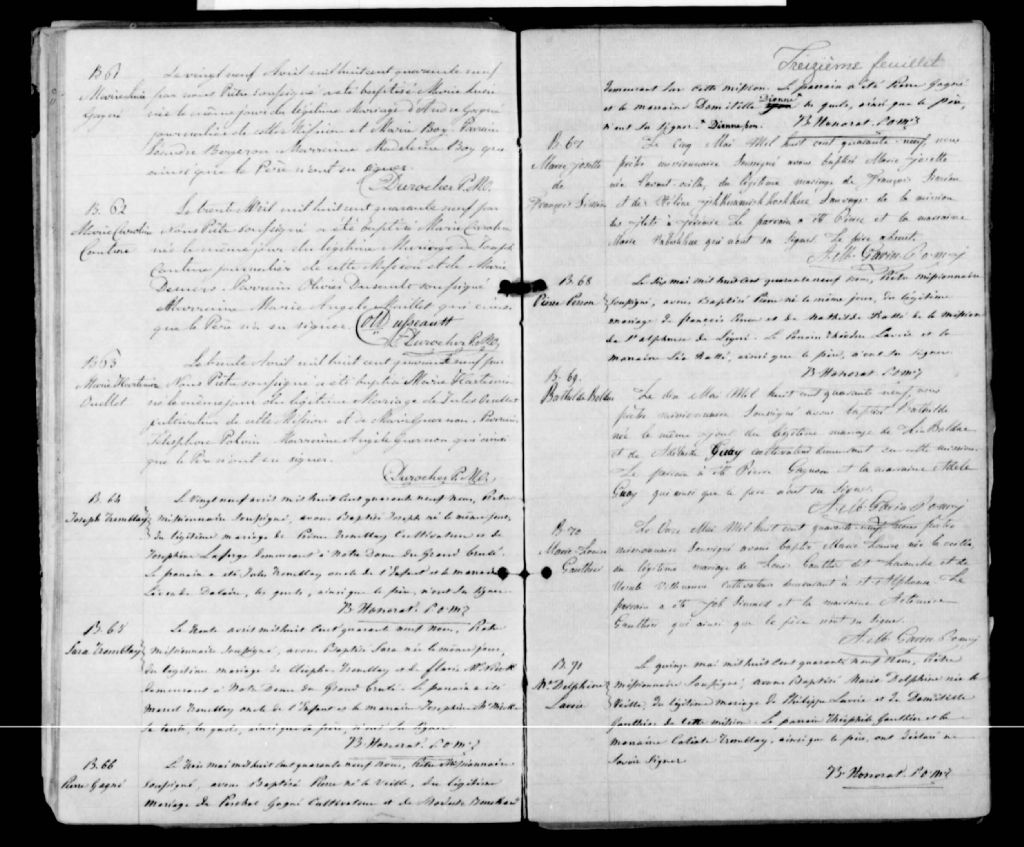 B. 61
Gagné
Le vingt neuf Avril mil huit cent quarante neuf
par nous Prêtre soussigné a été baptisée Marie
née le même jour du légitime Mariage d'André Gagné
journalier de cette Mission et Marie Boy Parrain
Bergeron Marraine Madeleine Boy qui
ainsi que le Père n'ont su signer.
Durocher P. M.
B. 62
Marie Caroline
Couture
Le trente Avril mil huit cent quarante neuf par
Nous Prêtre soussigné a été baptisée Marie Caroline
née le même jour du légitime Mariage de Joseph
Couture journalier de cette Mission et de Marie
Demers. Parrain Olivier Dusseault soussigné
Marraine Marie Angèle Ouillet qui ainsi
que le Père n'a su signer.
Old Dusseault
Durocher P. M.
B 63
Ouellet
Le trente Avril mil huit cent quarante neuf par
Nous Prêtre soussigné a été baptisée Marie
née le même jour du légitime Mariage de Jules Ouellet
cultivateur de cette Mission et de Marie Gagnon. Parrain
Télesphore Marraine Angèle Gagnon qui ainsi
que le Père n'ont su signer.
Durocher P. M.
B. 64
Joseph Tremblay
Le vingt neuf avril mil huit cent quarante neuf nous, Prêtre
missionnaire soussigné, avons baptisé Joseph né le même jour,
du légitime mariage de Tremblay Cultivateur et de
Josephine Laforge demeurant à Notre Dame du Grand Brulé.
Le parrain a été Jules Tremblay oncle de l'Enfant et la marraine
Dalaire, les quels, ainsi que le père, n'ont su signer.
B Honorat. P O M I
B. 65
Sara Tremblay
Le trente avril mil huit Cent quarante neuf nous, Prêtre
missionnaire soussigné, avons Baptisé Sara née le même jour,
du légitime mariage de Tremblay et de Flavie
demeurant à Notre Dame du Grand Brulé. Le parrain a été
Marcel Tremblay oncle de l'Enfant et la marraine Josephine
sa tante, les quels, ainsi que le père, n'ont su signer
B Honorat. P O M I
B. 66
Pierre Gagné
Le trois mai mil huit Cent quarante neuf nous, Prêtre Missionnaire
soussigné, avons Baptisé Pierre né la veille, du légitime
Mariage de Paschal Gagné Cultivateur et de Modeste Bouchard
Treizième feuillet
demeurant sur cette mission. Le parrain a été Pierre Gagné
et la marraine Domitille Dionne les quels, ainsi que le père,
n'ont su signer. Dionne bon. B Honorat. P O M I
B. 67
Marie Josette
de
François Siméon
Le Cinq Mai Mil huit cent quarante-neuf, nous
prêtre missionnaire soussigné avons baptisé Marie Josette
née l'avant-veille, du légitime mariage de François Siméon
et de sauvages de la mission
des Ilets à Jérémie Le parrain a été et la marraine
Marie qui n'ont su signer. Le père absent.
A. Mb. Garin P. o m j
B. 68
Pierre
Le Six mai mil huit Cent quarante neuf nous, Prêtre missionnaire
soussigné, avons Baptisé Pierre né le même jour, du légitime
mariage de françois et de Mathilde Ratté de la mission
de St alphonse de Liguori. Le Parrain Théodore Lavoie et la
marraine Ratté, ainsi que le père, n'ont su signer.
B Honorat. P O M I
B. 69.
Bathilde Bolduc
Le dix Mai Mil huit cent quarante-neuf, nous
prêtre missionnaire soussigné avons baptisé Bathilde
née le même jour du légitime mariage de Bolduc
et de Adélaïde Guay cultivateur demeurant en cette mission.
Le parrain a été Pierre Gagnon et la marraine Adèle
Guay qui ainsi que le père n'ont su signer.
A. Mb. Garin P. o m j
B. 70
Marie Louise
Gauthier
Le Onze Mai Mil huit cent quarante-neuf nous prêtre
missionnaire soussigné avons baptisé Marie Louise née la veille,
du légitime mariage de Louis Gauthier dit Larouche et de
Ursule Villeneuve cultivateur demeurant à St Alphonse. Le
parrain a été Job Simard et la marraine
Gauthier qui ainsi que le père n'ont su signer.
A. Mb. Garin P. o m j
B. 71
Me Delphine
Lavoie
Le quinze mai mil huit Cent quarante neuf nous, Prêtre
missionnaire soussigné, avons Baptisé Marie Delphine née la
Veille, du légitime mariage de Philippe Lavoie et de Domitilde
Gauthier de cette mission. Le parrain Théophile Gauthier et la
marraine Tremblay, ainsi que le père, ont déclaré ne
savoir signer
B Honorat. P O M I